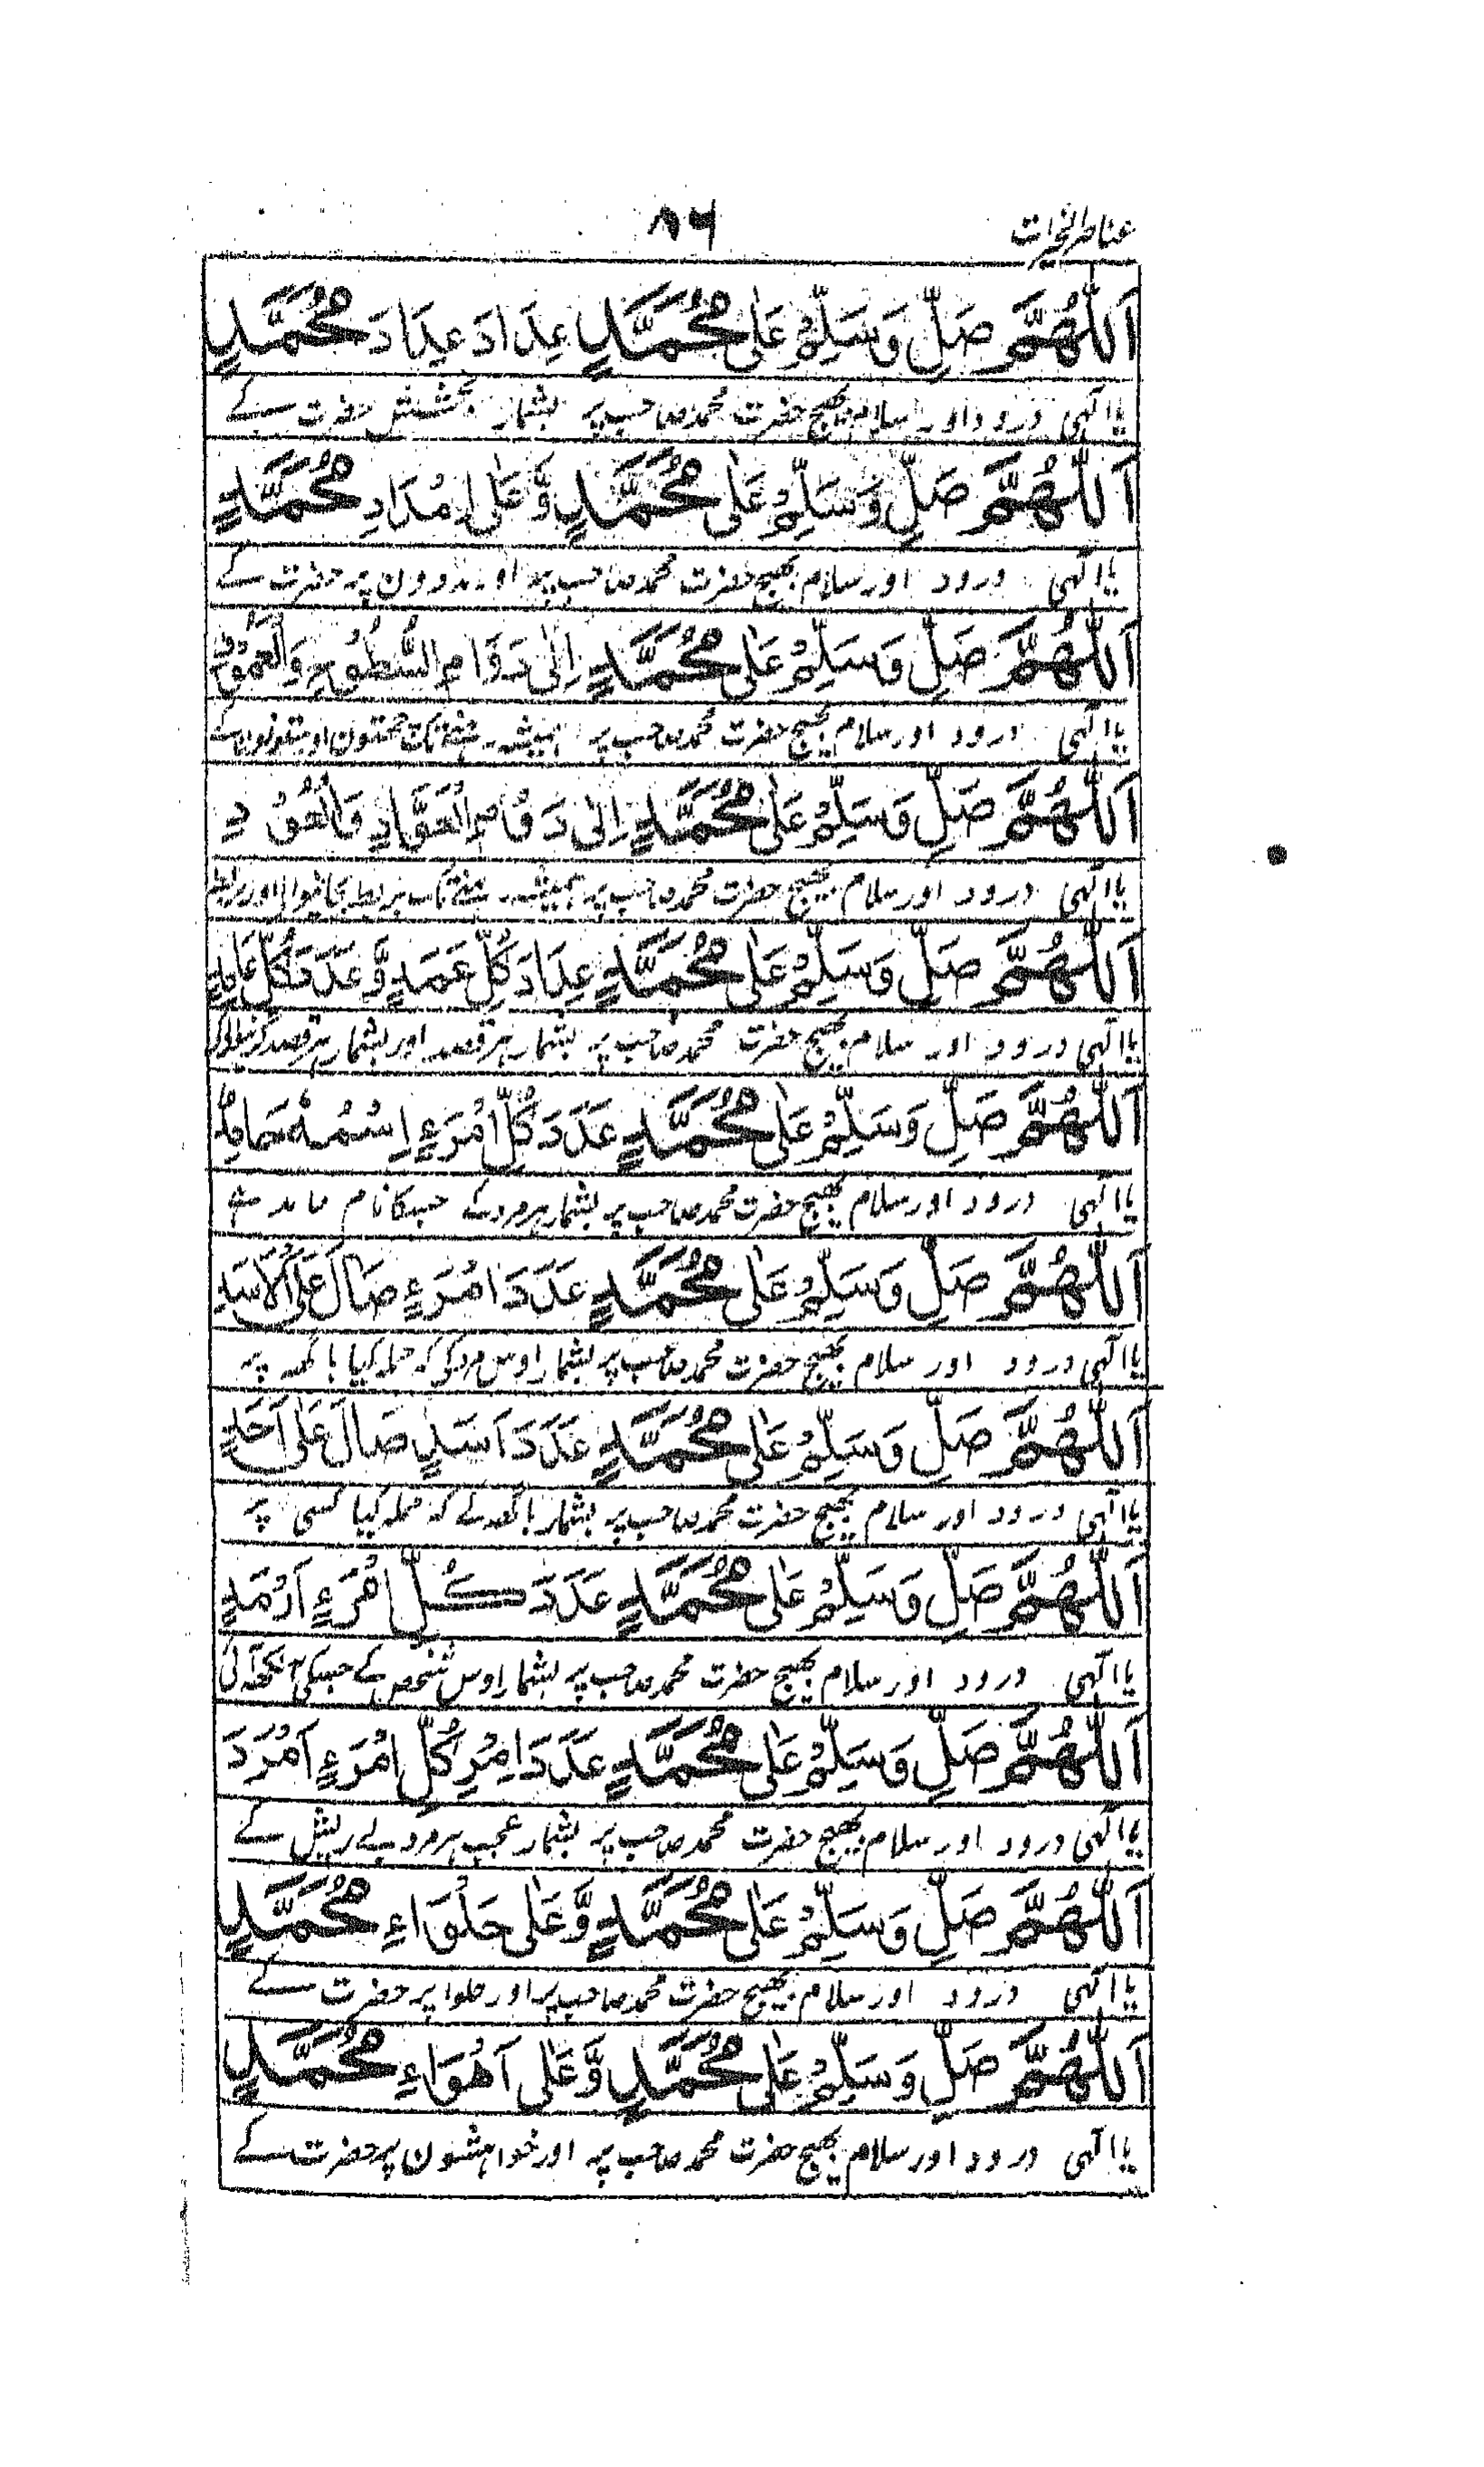 عناصر الخيرات
۸۶
اَللّٰهُمَّ صَلِّ وَسَلِّمْ عَلٰى مُحَمَّدٍ عِدَادَ عِدَادَ مُحَمَّدٍ
یا الٰہی درود اور سلام بھیج حضرت محمد صاحب پر بشمار بخشش حضرت کے
اَللّٰهُمَّ صَلِّ وَسَلِّمْ عَلٰى مُحَمَّدٍ وَّعَلٰى اِمْدَادِ مُحَمَّدٍ
یا الٰہی درود اور سلام بھیج حضرت محمد صاحب پر اور مددون پر حضرت کے
اَللّٰهُمَّ صَلِّ وَسَلِّمْ عَلٰى مُحَمَّدٍ اِلٰى دَوَامِ السُّطُوْحِ وَالْعُمُوْقِ
یا الٰہی درود اور سلام بھیج حضرت محمد صاحب پر ہمیشہ رہنے تک چھتون اور
اَللّٰهُمَّ صَلِّ وَسَلِّمْ عَلٰى مُحَمَّدٍ اِلٰى دَوَامِ الْعَوَّادِ وَالْعُوْدِ
یا الٰہی درود اور سلام بھیج حضرت محمد صاحب پر ہمیشہ رہنے تک بربط بجانیوالے اور بربط
اَللّٰهُمَّ صَلِّ وَسَلِّمْ عَلٰى مُحَمَّدٍ عِدَادَ كُلِّ عَمَدٍ وَّعَدَدَ كُلِّ عَامِدٍ
یا الٰہی درود اور سلام بھیج حضرت محمد صاحب پر بشمار ہر قصد اور بشمار ہر قصد کرنیوالے کی
اَللّٰهُمَّ صَلِّ وَسَلِّمْ عَلٰى مُحَمَّدٍ عَدَدَ كُلِّ امْرَءٍ اِسْمُهٗ حَامِدٌ
یا الٰہی درود اور سلام بھیج حضرت محمد صاحب پر بشمار ہر مرد کے جسکا نام حامد ہے
اَللّٰهُمَّ صَلِّ وَسَلِّمْ عَلٰى مُحَمَّدٍ عَدَدَ امْرَءٍ صَالَ عَلَى الْاَسَدِ
یا الٰہی درود اور سلام بھیج حضرت محمد صاحب پر بشمار اوس مرد کی کہ حملہ کیا باگھہ پر
اَللّٰهُمَّ صَلِّ وَسَلِّمْ عَلٰى مُحَمَّدٍ عَدَدَ اَسَدٍ صَالَ عَلٰى اَحَدٍ
یا الٰہی درود اور سلام بھیج حضرت محمد صاحب پر بشمار باگھہ کے کہ حملہ کیا کسی پر
اَللّٰهُمَّ صَلِّ وَسَلِّمْ عَلٰى مُحَمَّدٍ عَدَدَ كُلِّ امْرَءٍ اَرْمَدٍ
یا الٰہی درود اور سلام بھیج حضرت محمد صاحب پر بشمار اوس شخص کے جسکی آنکھہ آئی
اَللّٰهُمَّ صَلِّ وَسَلِّمْ عَلٰى مُحَمَّدٍ عَدَدَ اِمْرِ كُلِّ امْرَءٍ اَمْرَدَ
یا الٰہی درود اور سلام بھیج حضرت محمد صاحب پر بشمار عجب ہر مرد بے ریش کے
اَللّٰهُمَّ صَلِّ وَسَلِّمْ عَلٰى مُحَمَّدٍ وَّعَلٰى حَلْوَاءِ مُحَمَّدٍ
یا الٰہی درود اور سلام بھیج حضرت محمد صاحب پر اور حلوا پر حضرت کے
اَللّٰهُمَّ صَلِّ وَسَلِّمْ عَلٰى مُحَمَّدٍ وَّعَلٰى اَهْوَاءِ مُحَمَّدٍ
یا الٰہی درود اور سلام بھیج حضرت محمد صاحب پر اور خواہشون پر حضرت کے